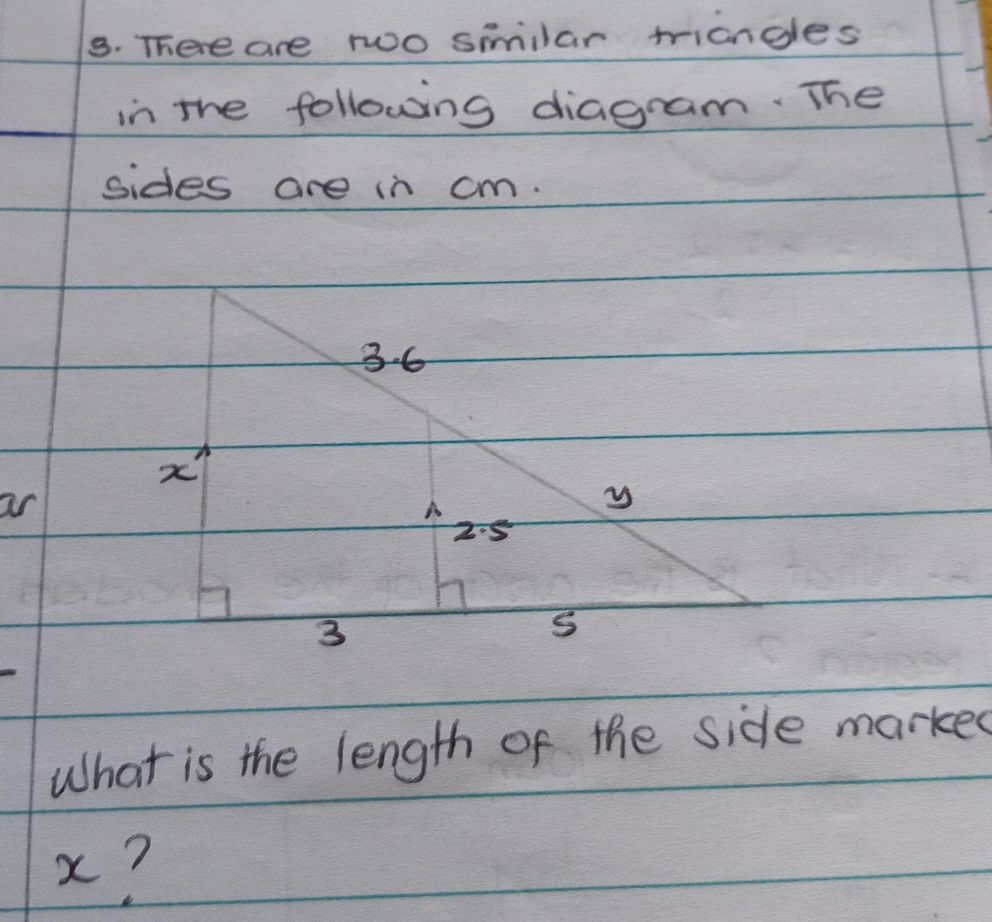 3. There are two similar triangles
in the following diagram. The
sides are in cm.
3.6
x
y
ar
2.5
3
5
What is the length of the side marked
x?